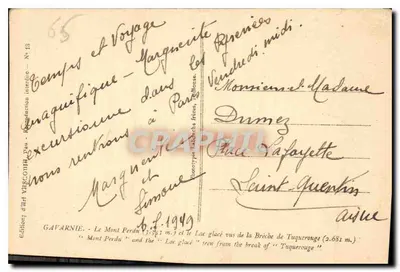 65
Temps et Voyage
magnifique - Marguerite
excursionne dans les Pyrénées
nous rentrons à Paris Vendredi midi.
Marguerite
et
Simone
1949
Monsieur et Madame
Dumez
Place Lafayette
Saint-Quentin
Aisne
CPArama
GAVARNIE. - Le Mont Perdu et le Lac glacé vus de la Brèche de Tuquerouge (2.681 m.)
"Mont Perdu" and the "Lac glacé" seen from the break of "Tuquerouge"